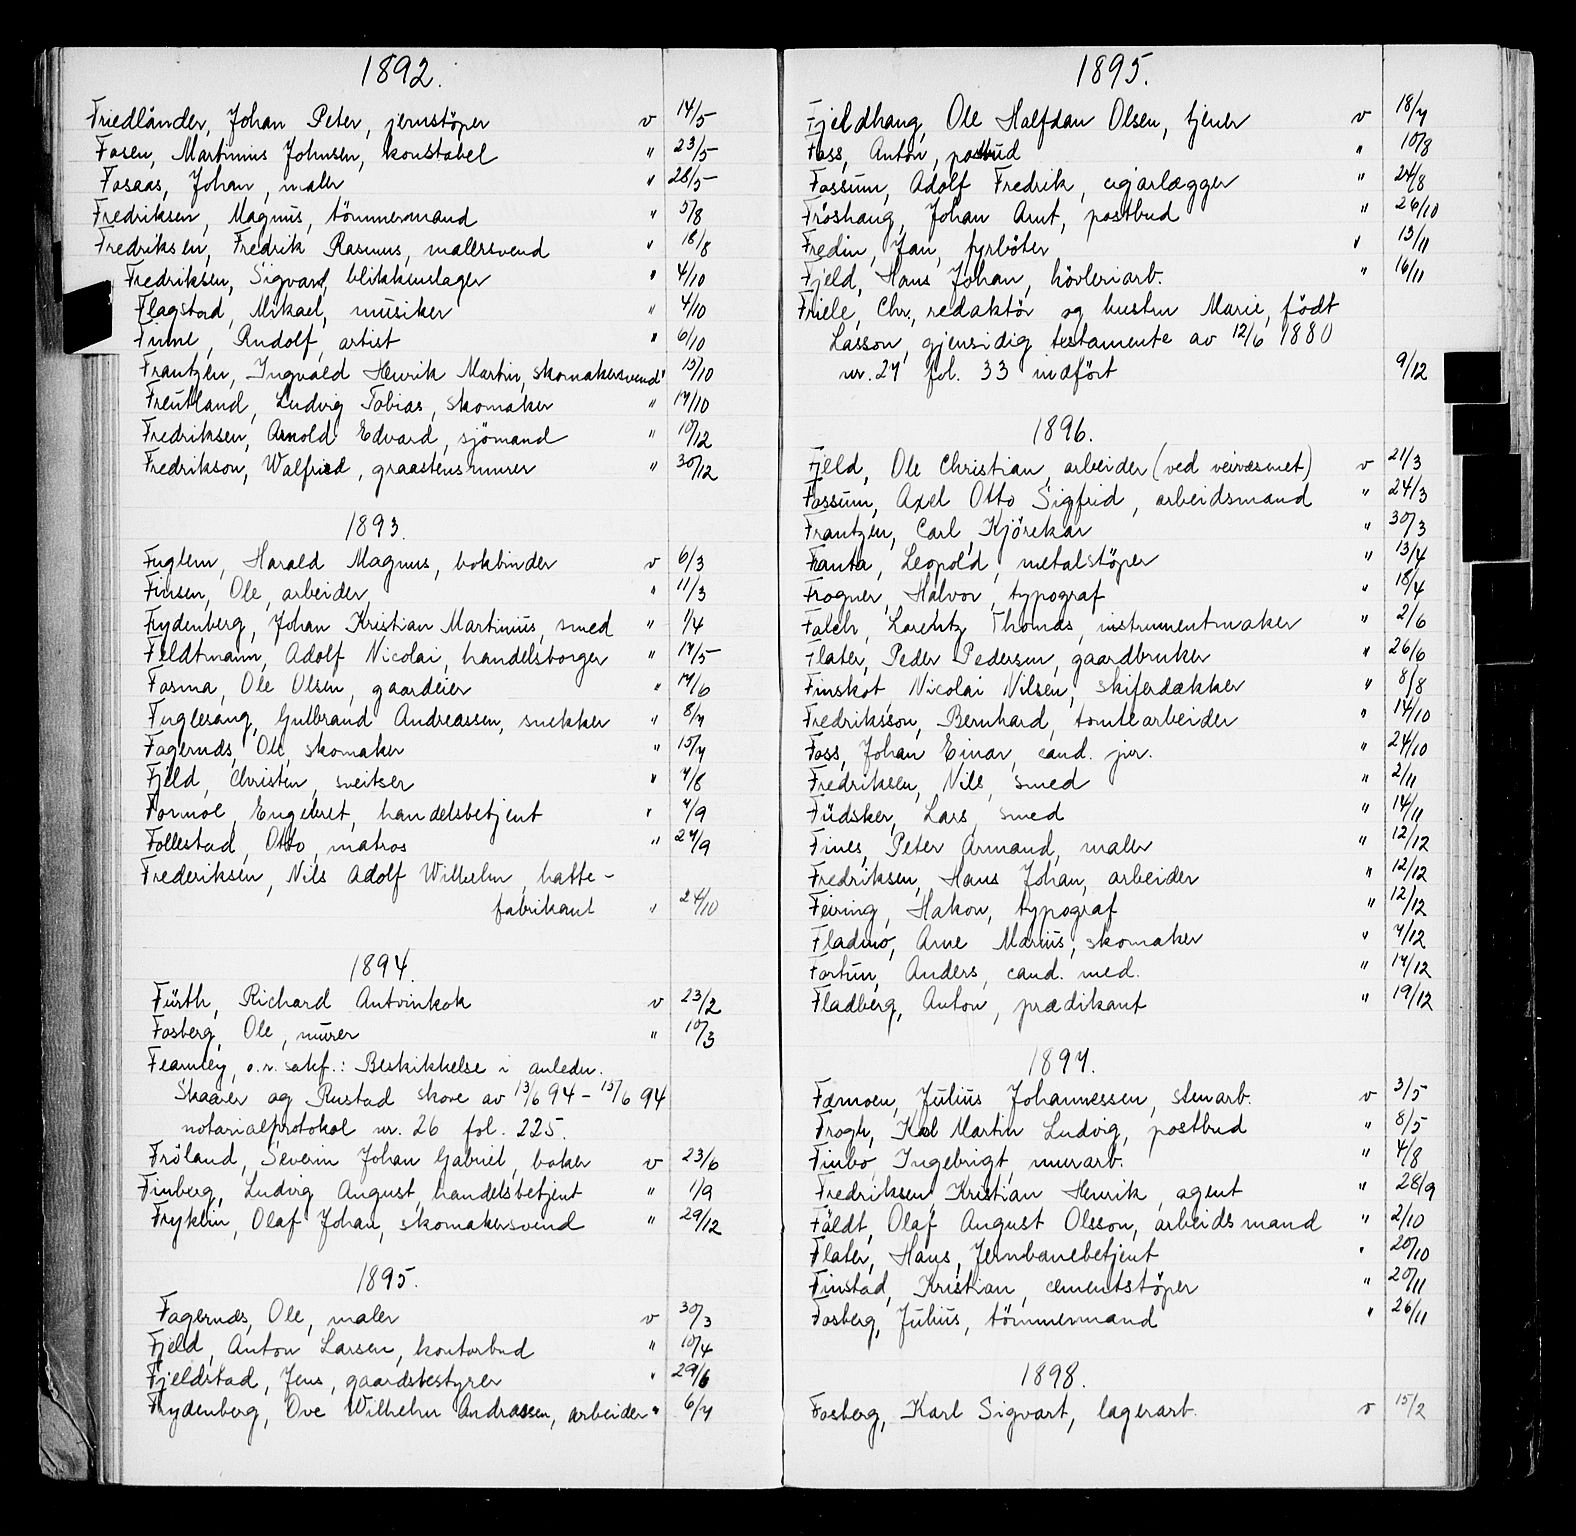 1892.
Friedländer, Johan Peter, jernstöper v 14/5
Fosen, Martinius Johnsen, konstabel " 23/5
Fosaas, Johan, maler " 28/5
Fredriksen, Magnus, tömmermand " 5/8
Fredriksen, Fredrik Rasmus, malersvend " 18/8
Fredriksen, Sigvard, blikkenslager " 4/10
Flagstad, Mikael, musiker " 4/10
Rudolf, artist " 6/10
Frantzen, Ingvald Henrik Martin, skomakersvend " 15/10
Freutland, Ludvig Tobias, skomaker " 17/10
Fredriksen, Arnold Edvard, sjömand " 10/12
Fredrikson, Walfried, graastensmurer " 30/12
1893.
Fuglem, Harald Magnus, bokbinder v 6/3
Finsen, Ole, arbeider " 11/3
Frydenberg, Johan Kristian Martinius, smed " 1/4
Feldtmann, Adolf Nicolai, handelsborger " 17/5
Fosma, Ole Olsen, gaardeier " 17/6
Fuglesang, Gulbrand Andreassen, snekker " 8/7
Fagernæs, Ole, skomaker " 15/7
Fjeld, Christen, sveitser " 7/8
Formoe, Engebret, handelsbetjent " 7/9
Follestad, Otto, matros " 27/9
Frederiksen, Nils Adolf Wilhelm, hatte-
fabrikant " 24/10
1894.
Fürth, Richard Antvinkok v 23/2
Fosberg, Ole, murer " 10/3
Fearnley, o.r. sakf.: Beskikkelse i anledn.
Skaarer og Rustad skove av 13/6 94 - 15/6 94
notarialprotokol nr. 26 fol. 225.
Fröland, Severin Johan Gabriel, baker v 23/6
Finberg, Ludvig August, handelsbetjent " 1/9
Fryklin, Olaf Johan, skomakersvend " 29/12
1895.
Fagernæs, Ole, maler v 30/3
Fjeld, Anton Larsen, kontorbud " 10/4
Fjeldstad, Jens, gaardsbestyrer " 29/6
Frydenberg, Ove Wilhelm Andreassen, arbeider " 6/7
1895.
Fjeldhaug, Ole Halfdan Olsen, tjener v 18/7
Foss, Anton, postbud " 10/8
Fossum, Adolf Fredrik, cigarlægger " 24/8
Fröshaug, Johan Arnt, postbud " 26/10
Fredin, Jan, fyrböter " 13/11
Fjeld, Hans Johan, hövleriarb. " 16/11
Friele, Chr., redaktör og hustru Marie, födt
Lasson, gjensidig testamente av 12/6 1880
nr. 27 fol. 33 indfört 9/12
1896.
Fjeld, Ole Christian, arbeider (ved veivæsenet) v 21/3
Fossum, Axel Otto Sigfrid, arbeidsmand " 24/3
Frantzen, Carl, Kjörekar " 30/3
Fanta, Leopold, metalstöper " 13/4
Frogner, Halvor, typograf " 18/4
Falch, Lorentz Thomas, instrumentmaker " 2/6
Flater, Peder Pedersen, gaardbruker " 26/6
Finskot, Nicolai Nilsen, skiferdækker " 8/8
Fredriksson, Bernhard, tomtearbeider " 14/10
Foss, Johan Einar, cand. jur. " 24/10
Fredriksen, Nils, smed " 2/11
Füdsker, Lars, smed " 14/11
Fines, Peter Armand, maler " 12/12
Fredriksen, Hans Johan, arbeider " 12/12
Feiring, Hakon, typograf " 12/12
Fladmo, Arne Marius, skomaker " 7/12
Fortun, Anders, cand. med. " 17/12
Fladberg, Anton, prædikant " 19/12
1897.
Færmoen, Julius Johannessen, stenarb. v 3/5
Frogh, Karl Martin Ludvig, postbud " 8/5
Finbo, Ingebrigt, murarb. " 4/8
Fredriksen, Kristian Henrik, agent " 28/9
Fäldt, Olaf August Olsson, arbeidsmand " 2/10
Flater, Hans, Jernbanebetjent " 20/10
Finstad, Kristian, cementstöper " 20/11
Fosberg, Julius, tömmermand " 26/11
1898.
Fosberg, Karl Sigvart, lagerarb. v 15/2